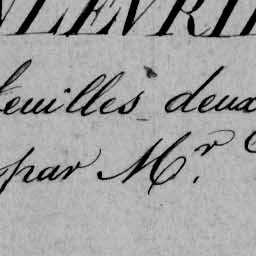 NLEVRIE
feuilles deux
par Mr. C